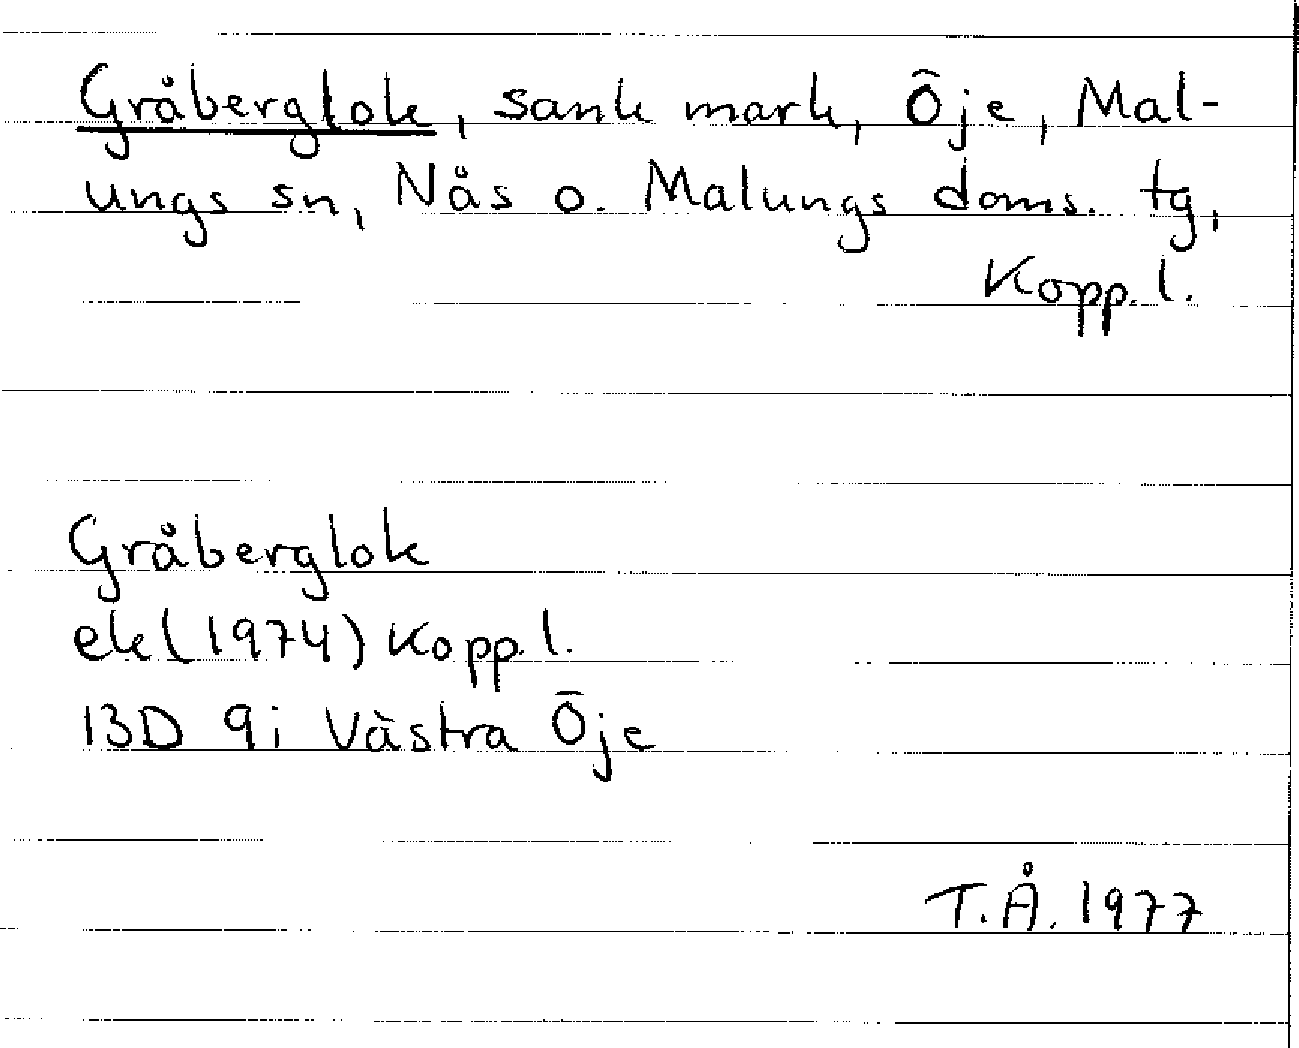 Gråberglok, sank mark, Öje, Mal-
ungs sn, Nås o. Malungs doms. tg,
Kopp. l.
Gråberglok
ek (1974) Kopp. l.
13D 9i Västra Öje
T.Å. 1977